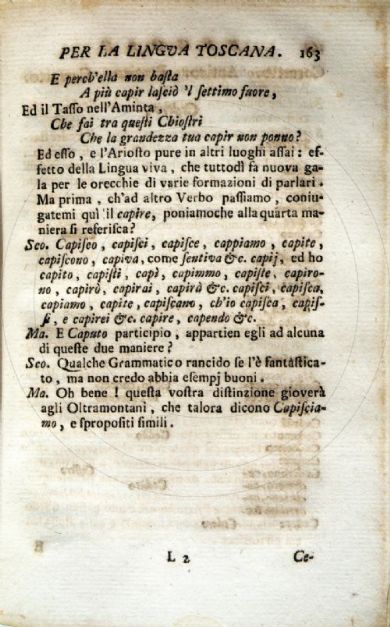 PER LA LINGVA TOSCANA. 163
E perch'ella non basta
A più capir lasciò 'l settimo fuore,
Ed il Tasso nell'Aminta,
Che fai tra questi Chiostri
Che la grandezza tua capir non ponno?
Ed esso, e l'Ariosto pure in altri luoghi assai: ef-
fetto della Lingua viva, che tuttodì fa nuova ga-
la per le orecchie di varie formazioni di parlari.
Ma prima, ch'ad altro Verbo passiamo, coniu-
gatemi quì il capire, poniamoche alla quarta ma-
niera si referisca?
Sco. Capisco, capisci, capisce, cappiamo, capite,
capiscono, capiva, come sentiva &c. capij, ed ho
capito, capisti, capì, capimmo, capiste, capiro-
no, capirò, capirai, capirà &c. capisci, capisca,
capiamo, capite, capiscano, ch'io capisca, capis-
si, e capirei &c. capire, capendo &c.
Ma. E Caputo participio, appartien egli ad alcuna
di queste due maniere?
Sco. Qualche Grammatico rancido se l'è fantastica-
to, ma non credo abbia esempj buoni.
Ma. Oh bene! questa vostra distinzione gioverà
agli Oltramontani, che talora dicono Capiscia-
mo, e spropositi simili.
L 2 Ce-